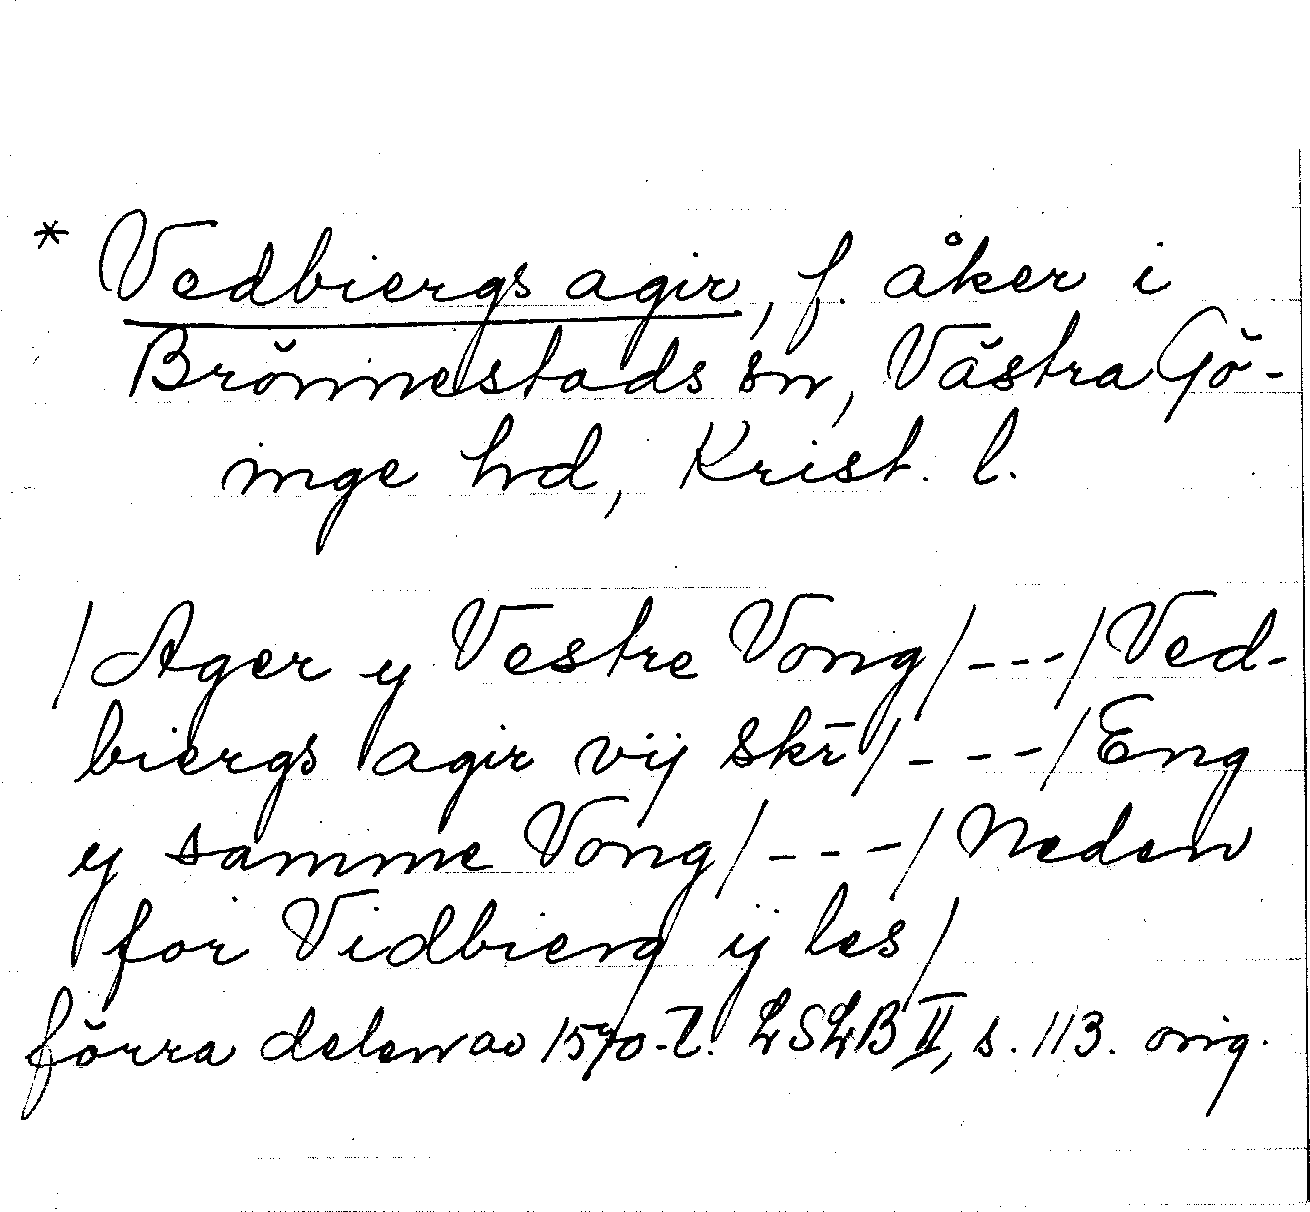 * Vedbiergs agir, f. åker i
Brönnestads sn, Västra Gö-
inge hd, Krist. l.
/Ager y Vestre Vong/---/Ved-
biergs agir vij skr̄/---/Eng
y samme Vong/---/Neden
for Vidbierg ij les/
förra delen av 1570-t. LSLB II, s. 113. orig.